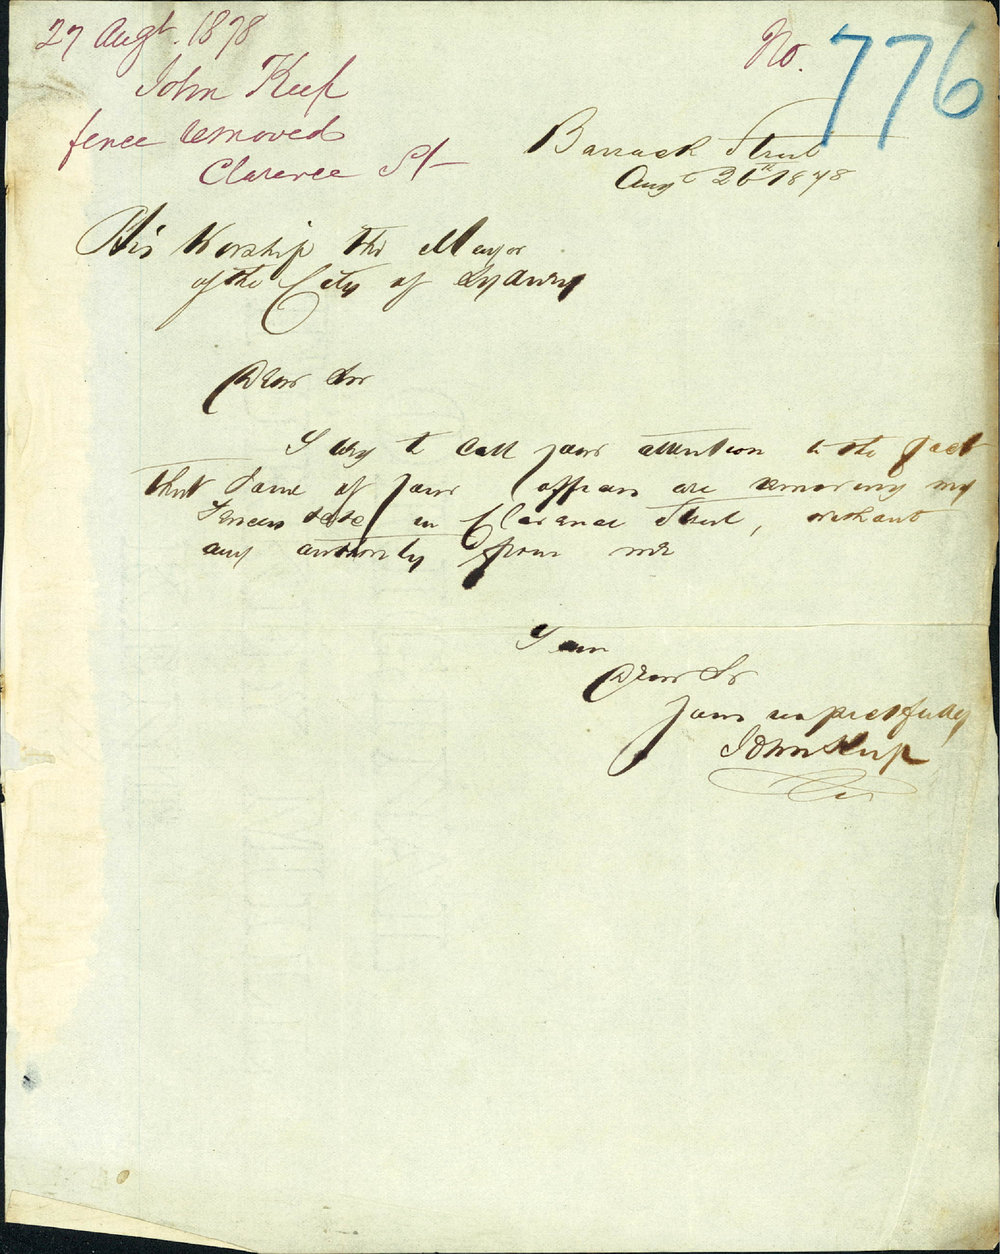 27 Augt. 1878
John Keep
fence removed
Clarence St
No. 776
Barrack Street
Augt 26th 1878
His Worship the Mayor
of the City of Sydney
Dear Sir
I beg to call your attention to the fact
that some of your are removing my
Fences in Clarence Street, without
any authority from me
I am
Dear Sir
Yours respectfully
John Keep